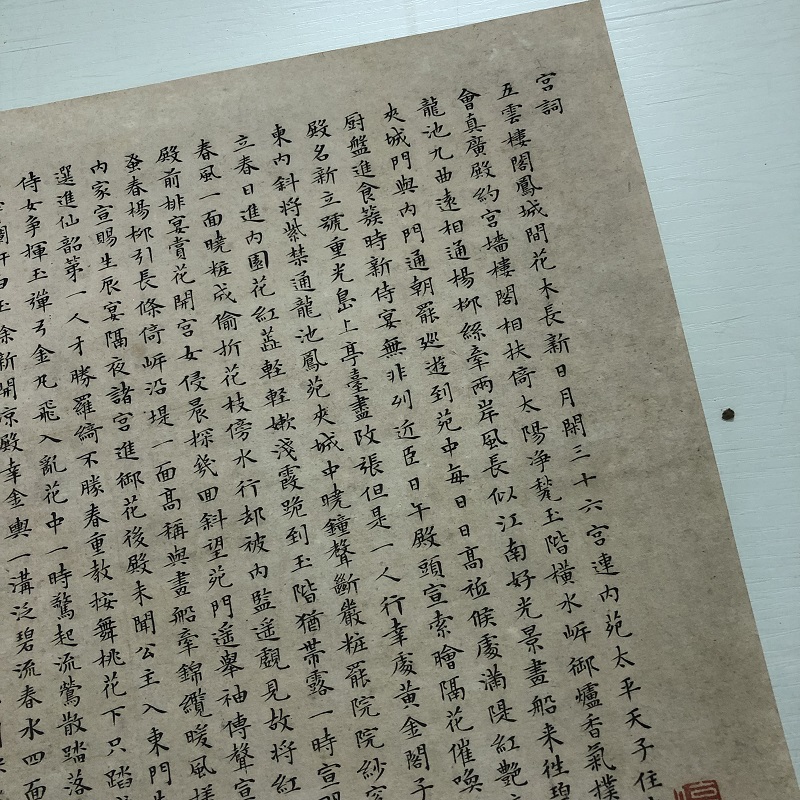 宮詞
五雲樓閣鳳城間花木長新日月閑三十六宮連內苑太平天子住
會真廣殿約宮墻樓閣相扶倚太陽淨甃玉階橫水岸御爐香氣撲
龍池九曲遠相通楊柳絲牽兩岸風長似江南好光景畫船来往碧
夾城門與內門通朝罷巡遊到苑中每日日高祗候處滿隄紅艷
厨盤進食簇時新侍宴無非列近臣日午殿頭宣索膾隔花催喚
殿名新立號重光島上亭臺盡改張但是一人行幸處黃金閣子
東內斜將紫禁通龍池鳳苑夾城中曉鐘聲斷嚴粧罷院院紗窓
立春日進內園花紅蕊輕輕嫩淺霞跪到玉階猶帶露一時宣
春風一面曉粧成偷折花枝傍水行却被內監遙覷見故將紅
殿前排宴賞花開宮女侵晨探幾回斜望苑門遙舉袖傳聲宣
蚤春楊柳引長條倚岸沿堤一面高稱與畫船牽錦纜暖風
內家宣賜生辰宴隔夜諸宮進御花後殿未聞公主入東門
選進仙韶第一人才勝羅綺不勝春重教按舞桃花下只踏
侍女争揮玉彈弓金丸飛入亂花中一時驚起流鶯散踏落
新開凉殿幸金輿一溝泛碧流春水四面